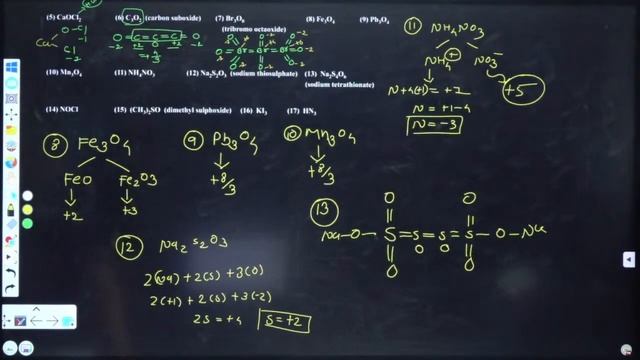 (5) CaOCl₂ (6) C₃O₂ (carbon suboxide) (7) Br₃O₈ (tribromo octaoxide) (8) Fe₃O₄ (9) Pb₃O₄
O-Cl
-1
Cl
-1
O=C=C=C=O
-2 +2 0 +2 -2
4/3
O=Br-Br-Br=O
(10) Mn₃O₄ (11) NH₄NO₃ (12) Na₂S₂O₃ (sodium thiosulphate) (13) Na₂S₄O₆ (sodium tetrathionate)
(14) NOCl (15) (CH₃)₂SO (dimethyl sulphoxide) (16) KI₃ (17) HN₃
(11) NH₄NO₃
NH₄⁺ NO₃⁻
N+4(+1)=+1
+5
N=+1-4
N=-3
(8) Fe₃O₄
FeO Fe₂O₃
+2 +3
(9) Pb₃O₄
+8/3
(10) Mn₃O₄
+8/3
(12) Na₂S₂O₃
2(Na)+2(S)+3(O)
2(+1)+2(S)+3(-2)
2S=+4 S=+2
(13)
O O
Na-O-S=S=S=S-O-Na
O O
O O